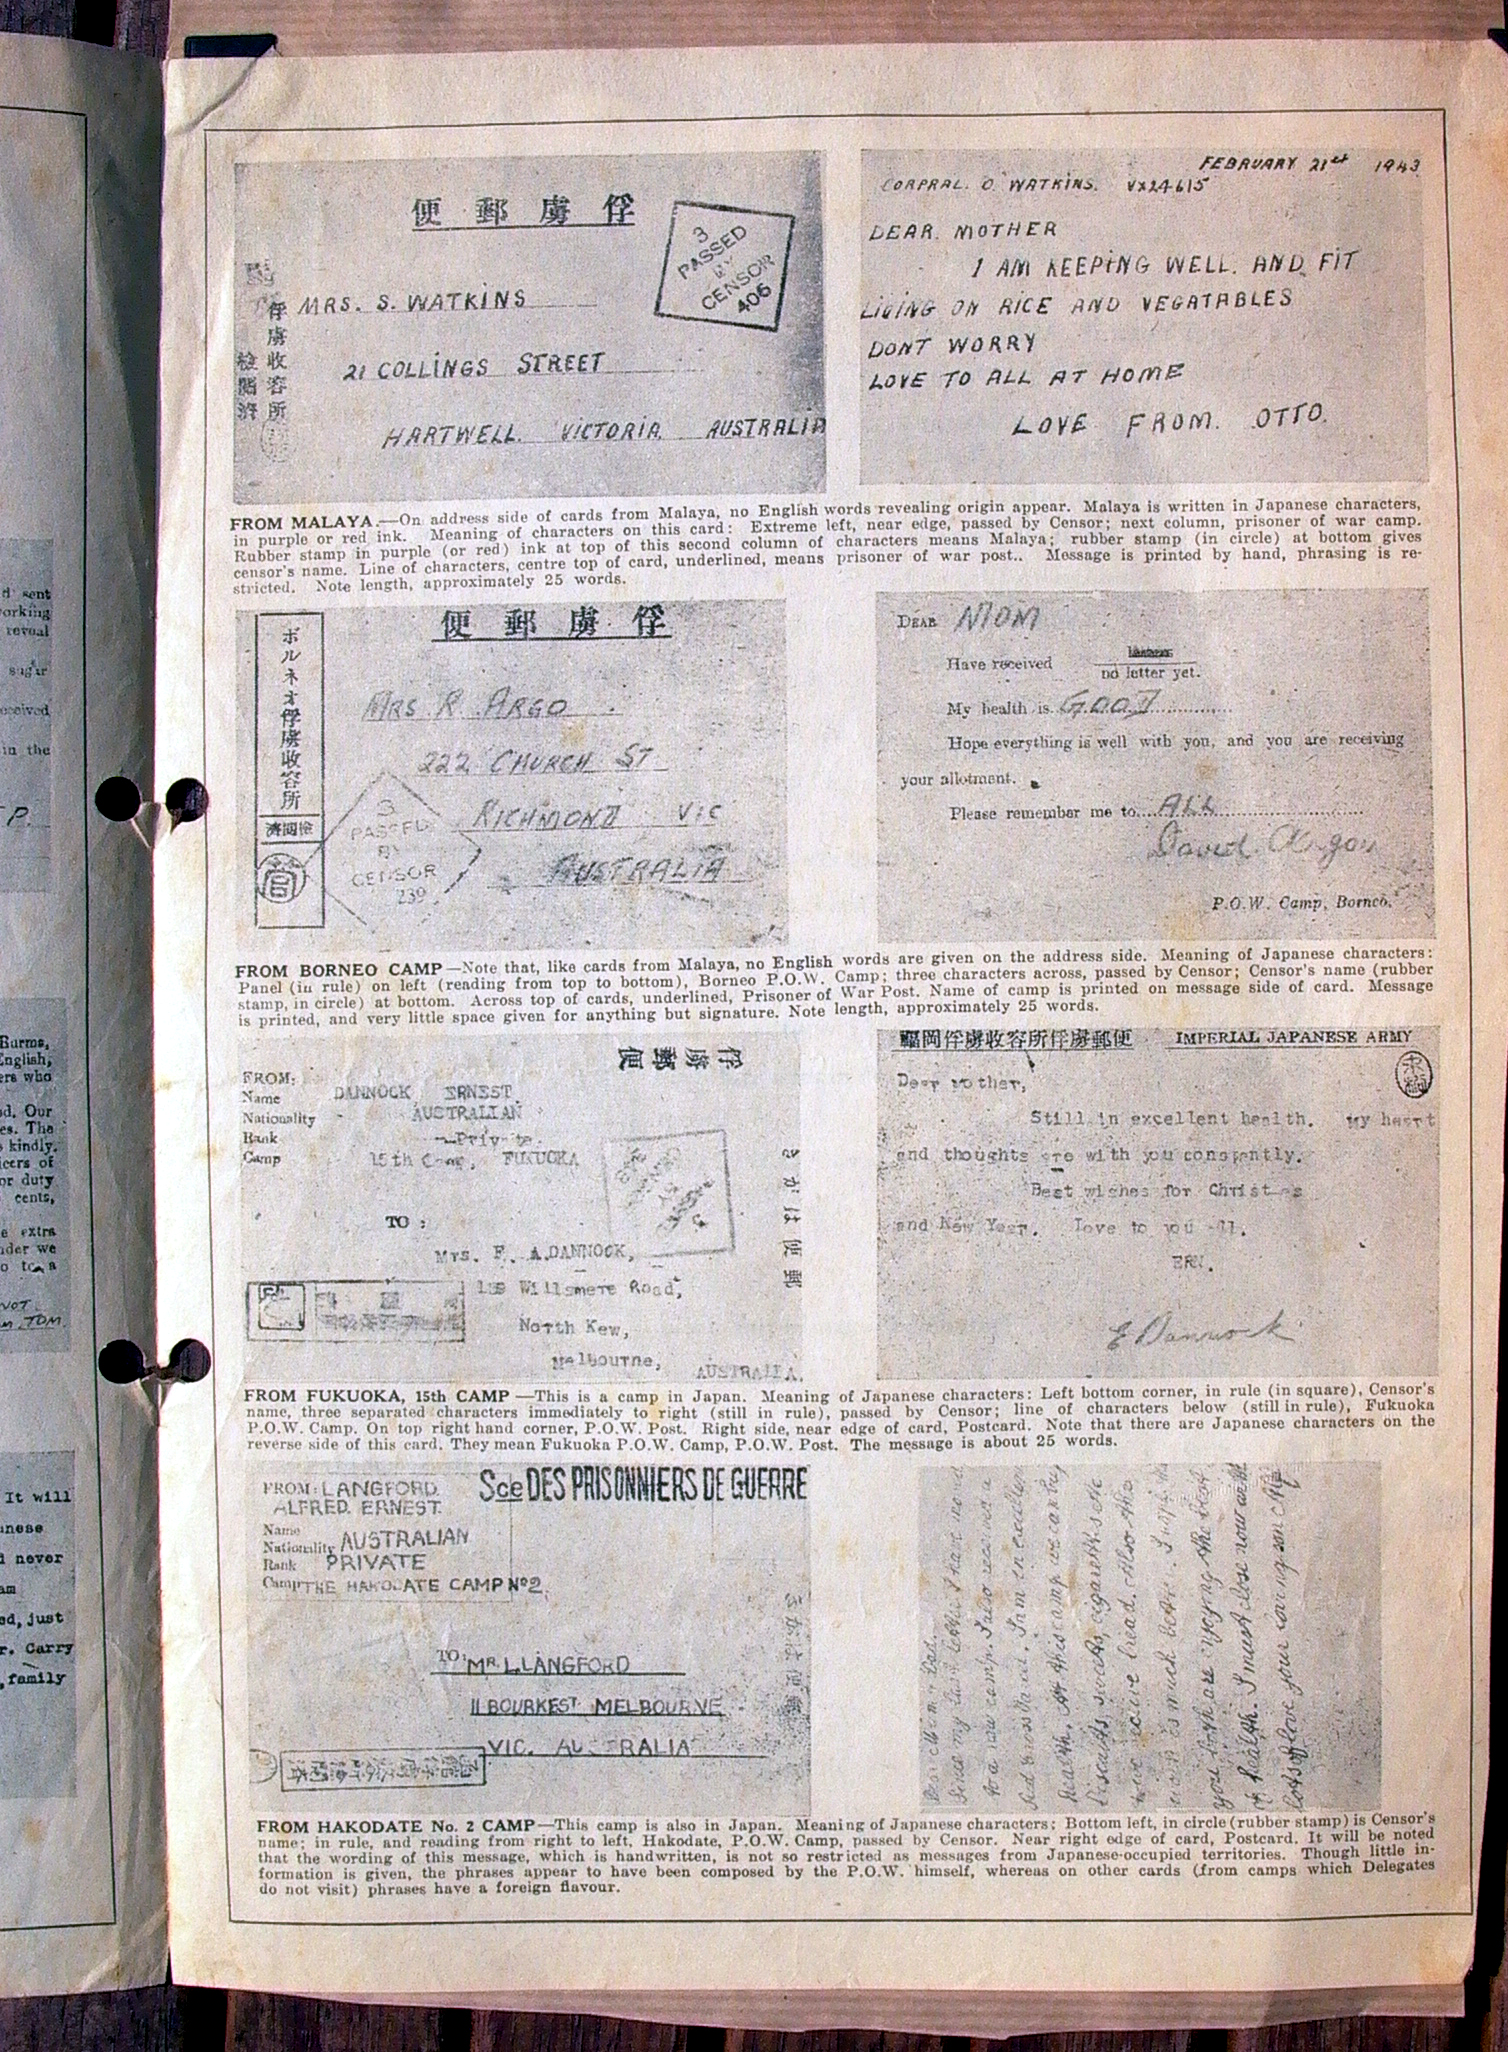 d sent
working
reveal
sugar
received
in the
P.
Burma,
English,
ers who
ed. Our
es. The
s kindly.
icers of
or duty
cents,
e extra
nder we
o to a
NOT
M. TOM.
It will
anese
d never
am
ed, just
r. Carry
, family
便郵虜俘
3
PASSED
BY
CENSOR
406
俘虜收容所
檢閲濟
MRS. S. WATKINS
21 COLLINGS STREET
HARTWELL. VICTORIA. AUSTRALIA
FEBRUARY 21st 1943
CORPRAL. O. WATKINS. VX24615
DEAR. MOTHER
I AM KEEPING WELL. AND FIT
LIVING ON RICE AND VEGATABLES
DONT WORRY
LOVE TO ALL AT HOME
LOVE FROM. OTTO.
FROM MALAYA.—On address side of cards from Malaya, no English words revealing origin appear. Malaya is written in Japanese characters,
in purple or red ink. Meaning of characters on this card: Extreme left, near edge, passed by Censor; next column, prisoner of war camp.
Rubber stamp in purple (or red) ink at top of this second column of characters means Malaya; rubber stamp (in circle) at bottom gives
censor's name. Line of characters, centre top of card, underlined, means prisoner of war post.. Message is printed by hand, phrasing is re-
stricted. Note length, approximately 25 words.
便郵虜俘
ボルネオ俘虜收容所
濟閲檢
菅
MRS R. ARGO
222 CHURCH ST
RICHMOND VIC
AUSTRALIA
3
PASSED
BY
CENSOR
239
DEAR MOM
Have received
no letter yet.
My health is GOOD
Hope everything is well with you, and you are receiving
your allotment.
Please remember me to ALL
David
P.O.W. Camp, Borneo.
FROM BORNEO CAMP—Note that, like cards from Malaya, no English words are given on the address side. Meaning of Japanese characters:
Panel (in rule) on left (reading from top to bottom), Borneo P.O.W. Camp; three characters across, passed by Censor; Censor's name (rubber
stamp, in circle) at bottom. Across top of cards, underlined, Prisoner of War Post. Name of camp is printed on message side of card. Message
is printed, and very little space given for anything but signature. Note length, approximately 25 words.
便郵虜俘
FROM:
Name DANNOCK ERNEST
Nationality AUSTRALIAN
Rank Private
Camp 15th Camp, FUKUOKA
TO:
Mrs. F. A. DANNOCK,
Willsmere Road,
North Kew,
Melbourne, AUSTRALIA.
きがは便郵
福岡俘虜收容所俘虜郵便 IMPERIAL JAPANESE ARMY
Dear Mother,
Still in excellent health. My heart
and thoughts are with you constantly.
Best wishes for Christmas
and New Year. Love to you all.
ERN.
E Dannock
FROM FUKUOKA, 15th CAMP—This is a camp in Japan. Meaning of Japanese characters: Left bottom corner, in rule (in square), Censor's
name, three separated characters immediately to right (still in rule), passed by Censor; line of characters below (still in rule), Fukuoka
P.O.W. Camp. On top right hand corner, P.O.W. Post. Right side, near edge of card, Postcard. Note that there are Japanese characters on the
reverse side of this card. They mean Fukuoka P.O.W. Camp, P.O.W. Post. The message is about 25 words.
Sce DES PRISONNIERS DE GUERRE
FROM: LANGFORD.
ALFRED. ERNEST.
Name
Nationality AUSTRALIAN
Rank PRIVATE
Camp THE HAKODATE CAMP Nº2.
TO: MR. L. LANGFORD
11 BOURKE ST MELBOURNE
VIC. AUSTRALIA
Dear Mum & Dad.
Since my last letter I have moved
to a new camp. I also received a
Red Cross parcel. I am in excellent
health. At this camp we can buy
biscuits, sweets, cigarettes etc
we receive bread. Also the
is much better. I hope
you both are enjoying the best
of health. I must close now with
lots of love your loving son
FROM HAKODATE No. 2 CAMP—This camp is also in Japan. Meaning of Japanese characters; Bottom left, in circle (rubber stamp) is Censor's
name; in rule, and reading from right to left, Hakodate, P.O.W. Camp, passed by Censor. Near right edge of card, Postcard. It will be noted
that the wording of this message, which is handwritten, is not so restricted as messages from Japanese-occupied territories. Though little in-
formation is given, the phrases appear to have been composed by the P.O.W. himself, whereas on other cards (from camps which Delegates
do not visit) phrases have a foreign flavour.